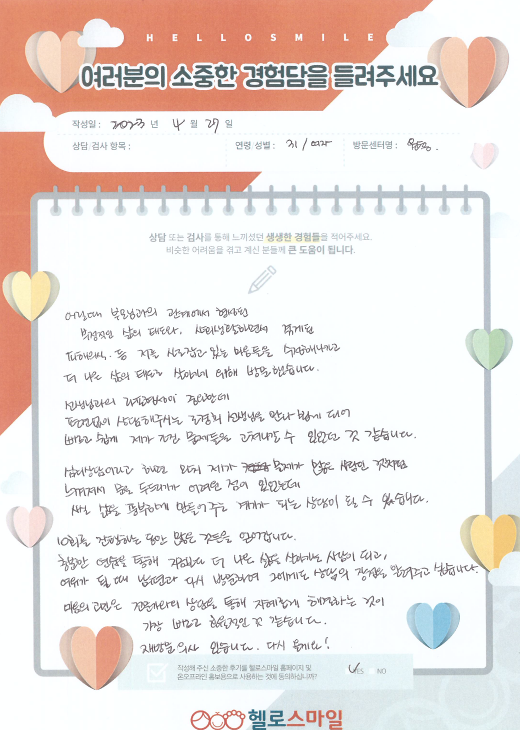 HELLOSMILE
여러분의 소중한 경험담을 들려주세요
작성일 : 2023 년 4 월 27 일
상담 검사 항목 : 연령 성별 : 31 / 여자 방문센터명 :
상담 또는 검사를 통해 느끼셨던 생생한 경험들을 적어주세요.
비슷한 어려움을 겪고 계신 분들께 큰 도움이 됩니다.
어릴때 부모님과의 관계에서 형성된
부정적인 삶의 태도와, 사회생활하면서 겪게된
피해의식, 등 저를 사로잡고 있는 마음들을 수정해나가고
더 나은 삶의 태도로 살아가기 위해 방문했습니다.
선생님과의 라포형성이 중요한데
편견없이 상담해주시는 조경희 선생님을 만나 뵙게 되어
빠르고 쉽게 제가 가진 문제들을 고쳐나갈 수 있었던 것 같습니다.
심리상담이라고 하면 와서 제가 문제가 많은 사람인 것처럼
느껴져서 문을 두드리기가 어려운 점이 있었는데
새로 삶을 풍부하게 만들어주는 계기가 되는 상담이 될 수 있습니다.
10회를 진행하는 동안 많은 것들을 얻어갑니다.
꾸준한 연습을 통해 지금보다 더 나은 삶을 살아가는 사람이 되고,
여유가 될 때 남편과 다시 방문하여 그에게도 상담의 장점을 알려주고 싶습니다.
마음의 고민은 전문가와의 상담을 통해 지혜롭게 해결하는 것이
가장 빠르고 효율적인 것 같습니다.
재방문의사 있습니다. 다시 올게요!
작성해 주신 소중한 후기를 헬로스마일 홈페이지 및
온모프라인 홍보용으로 사용하는 것에 동의하십니까?
YES NO
헬로스마일